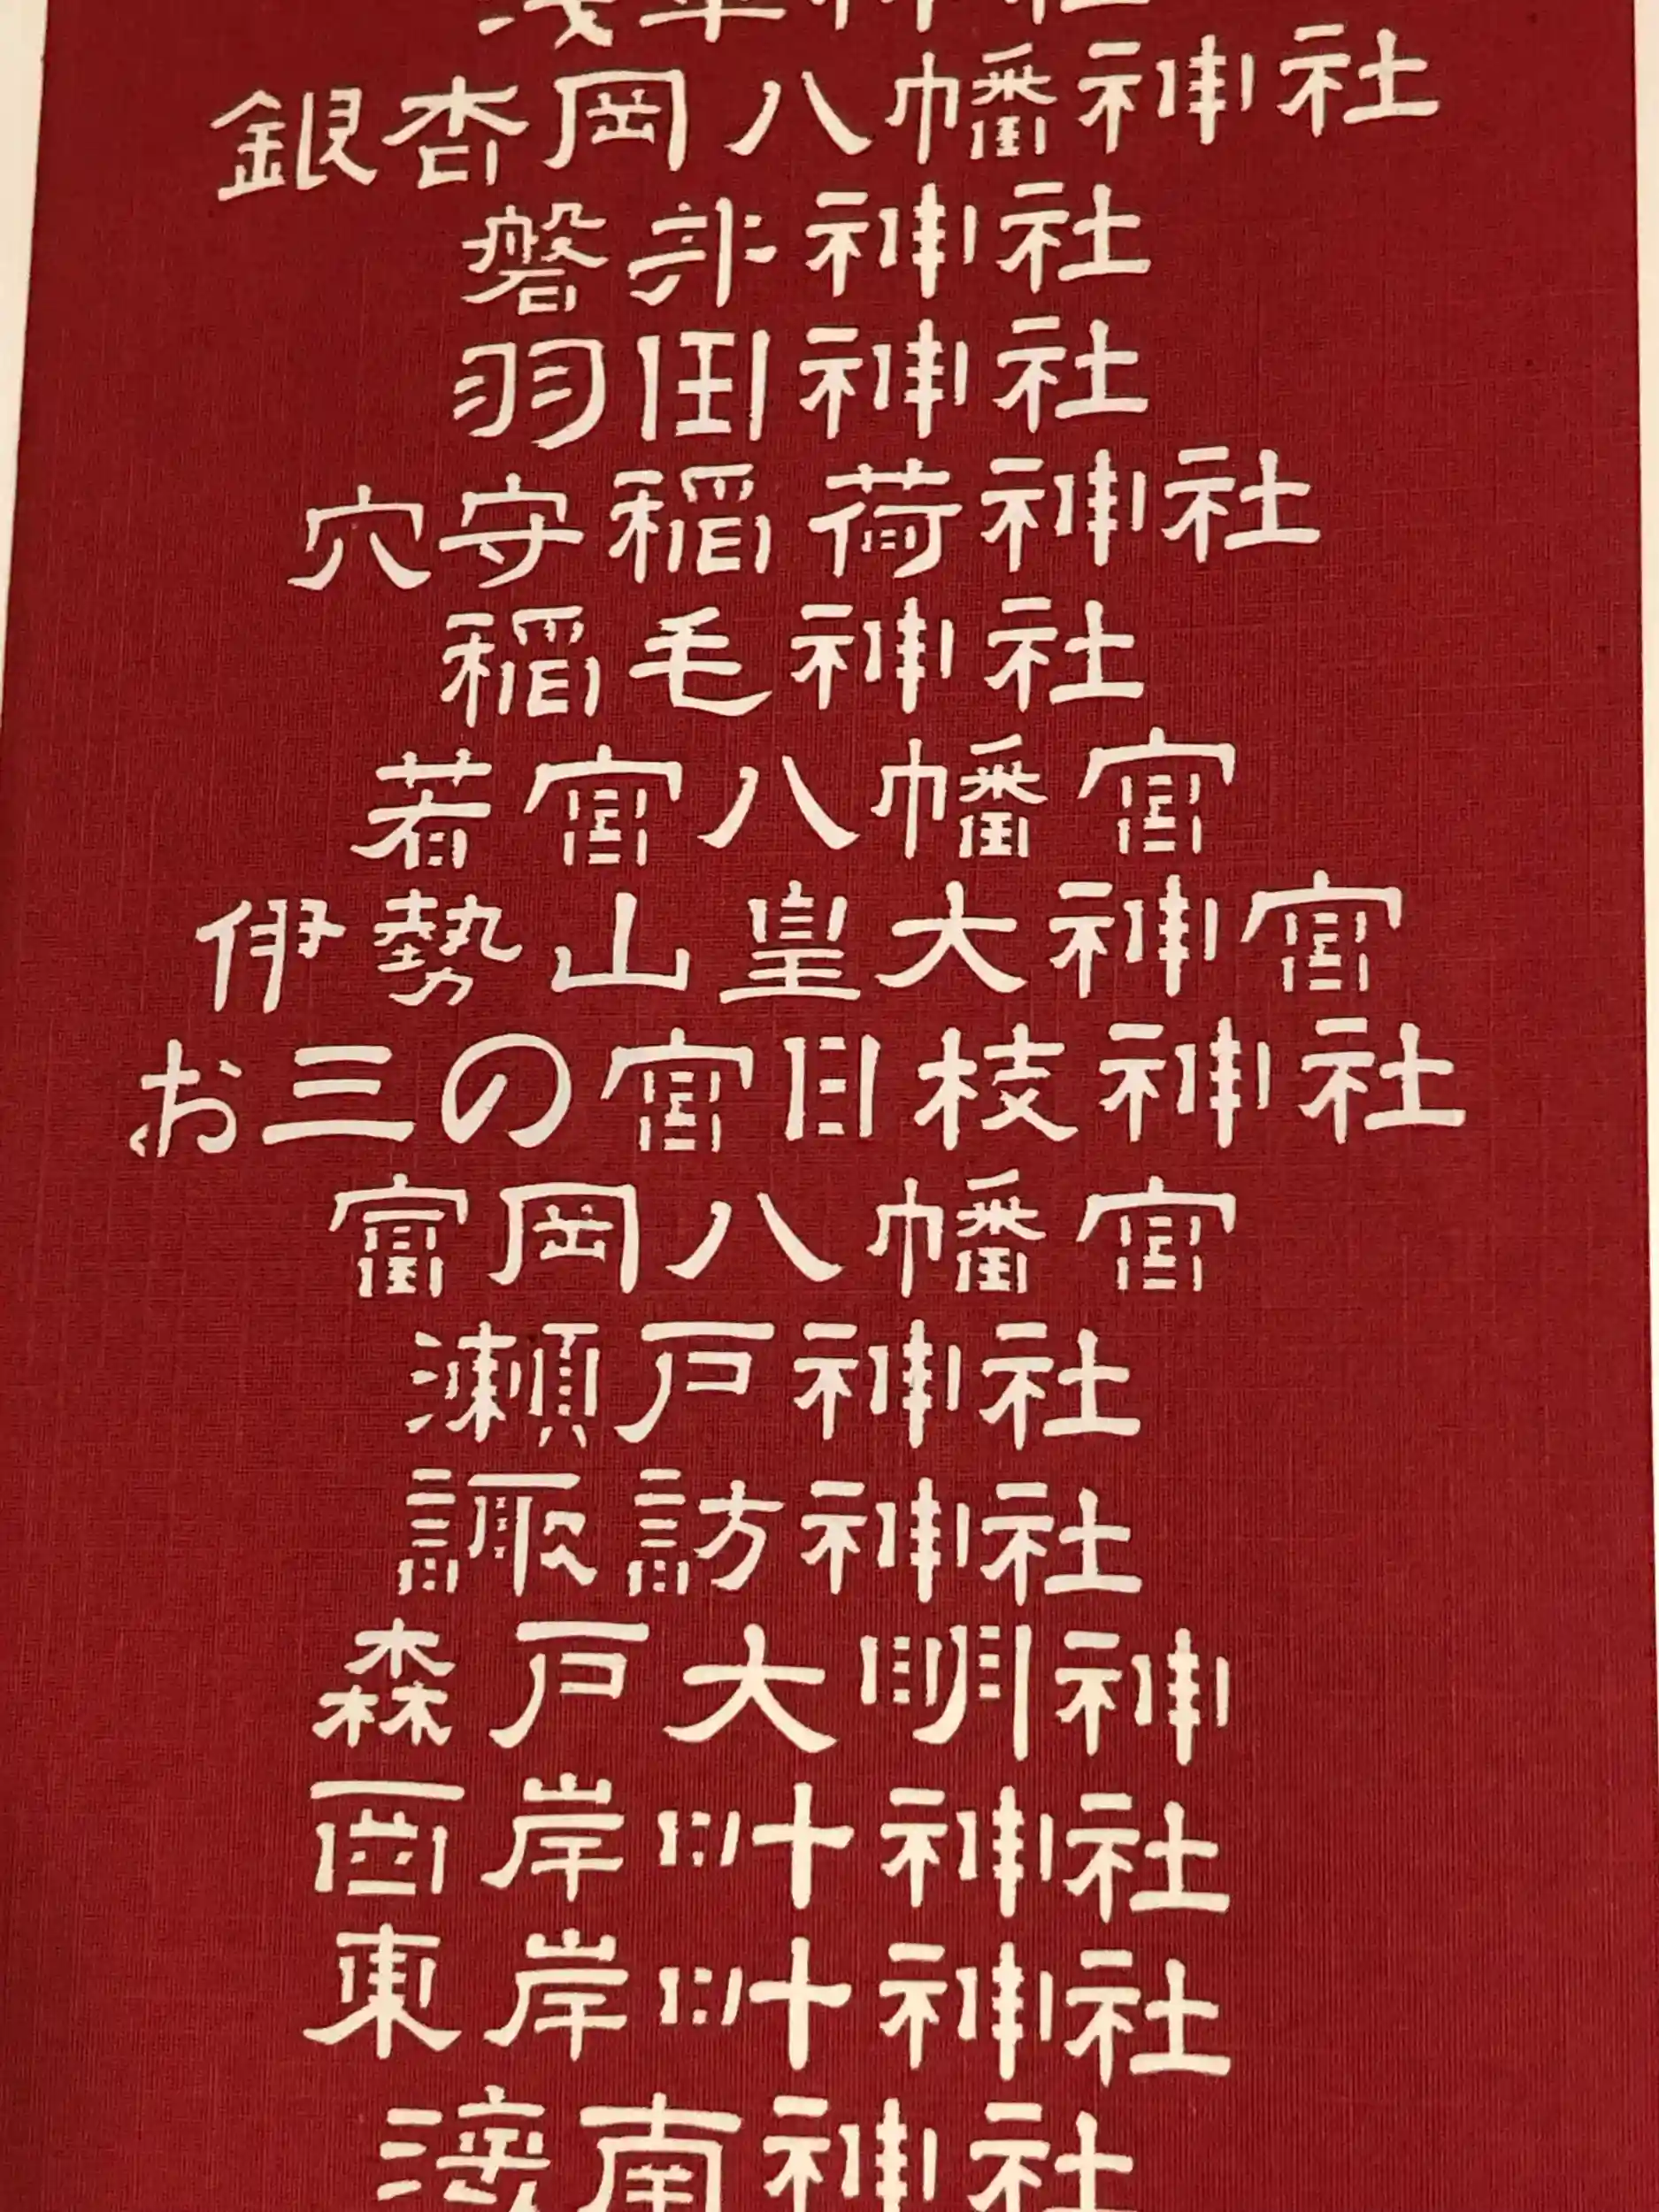 浅草神社
銀杏岡八幡神社
磐井神社
羽田神社
穴守稲荷神社
稲毛神社
若宮八幡宮
伊勢山皇大神宮
お三の宮日枝神社
富岡八幡宮
瀬戸神社
諏訪神社
森戸大明神
西叶神社
東叶神社
海南神社